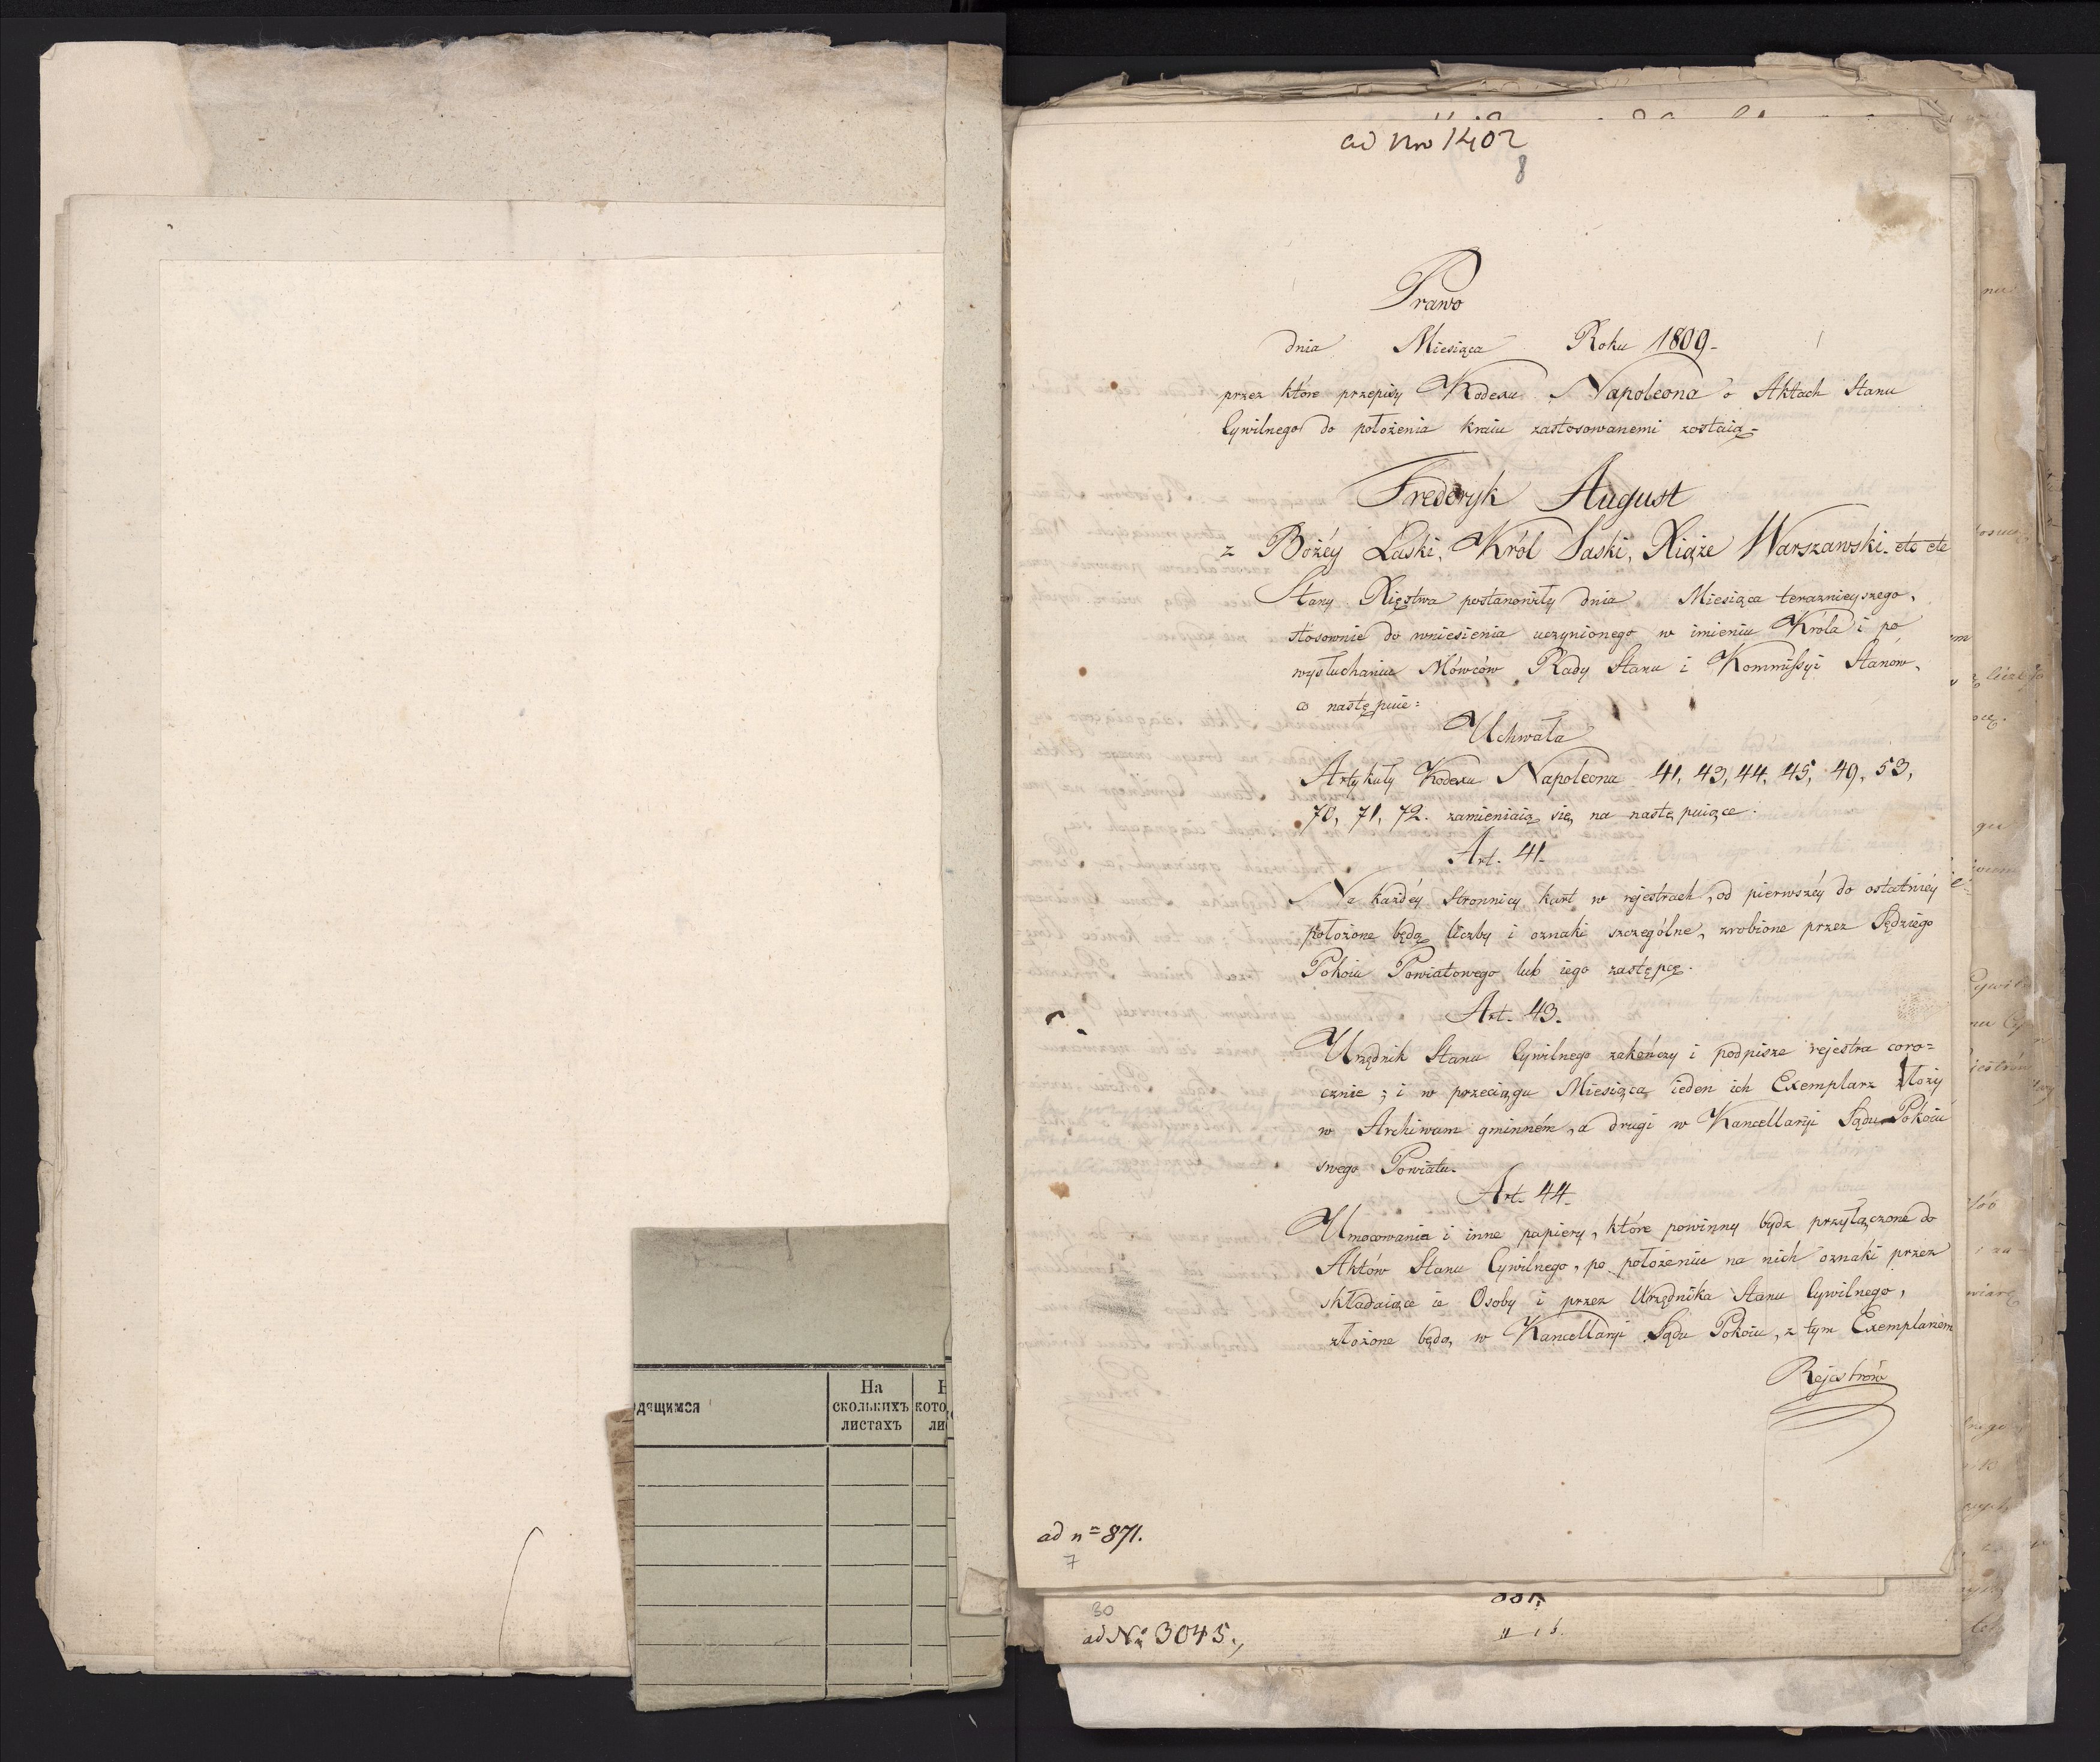 дящимся
На
скольких​ъ
листахъ
ad Nro 1402
8
Prawo
dnia Miesiąca Roku 1809-
przez które przepisy Kodexu Napoleona o Aktach Stanu
Cywilnego do położenia kraiu zastosowanemi zostaią=
Frederyk August
z Bożéy Łaski, Król Saski, Xiąże Warszawski. etc etc
Stany Xięstwa postanowiły dnia Miesiąca teraznieyszego,
stosownie do wniesienia uczynionego w imieniu Króla i po
wysłuchaniu Mówców Rady Stanu i Kommissyi Stanów,
co następuie:
Uchwała
Artykuły Kodexu Napoleona 41, 43, 44, 45, 49, 53,
70, 71, 72. zamieniaią się na następuiące.
Art. 41.
Na każdéy stronnicy kart w rejestrach, od pierwszéy do ostatniéy
położone będą liczby i oznaki szczególne, zrobione przez Sędziego
Pokoiu Powiatowego lub iego zastępcę.
Art. 43.
Urzędnik Stanu Cywilnego zakończy i podpisze rejestra coro=
cznie; i w przeciągu Miesiąca ieden ich Exemplarz złoży
w Archiwum gminném, a drugi w Kancellaryi Sądu Pokoiu
swego Powiatu.
Art. 44.
Umocowania i inne papiery, które powinny bydz przyłączone do
Aktów Stanu Cywilnego, po położeniu na nich oznaki przez
składaiące ie Osoby i przez Urzędnika Stanu Cywilnego,
złożone będą w Kancellaryi Sądu Pokoiu, z tym Exemplarzem
Rejestrów
ad n= 871.
7
30
ad No 3045.,